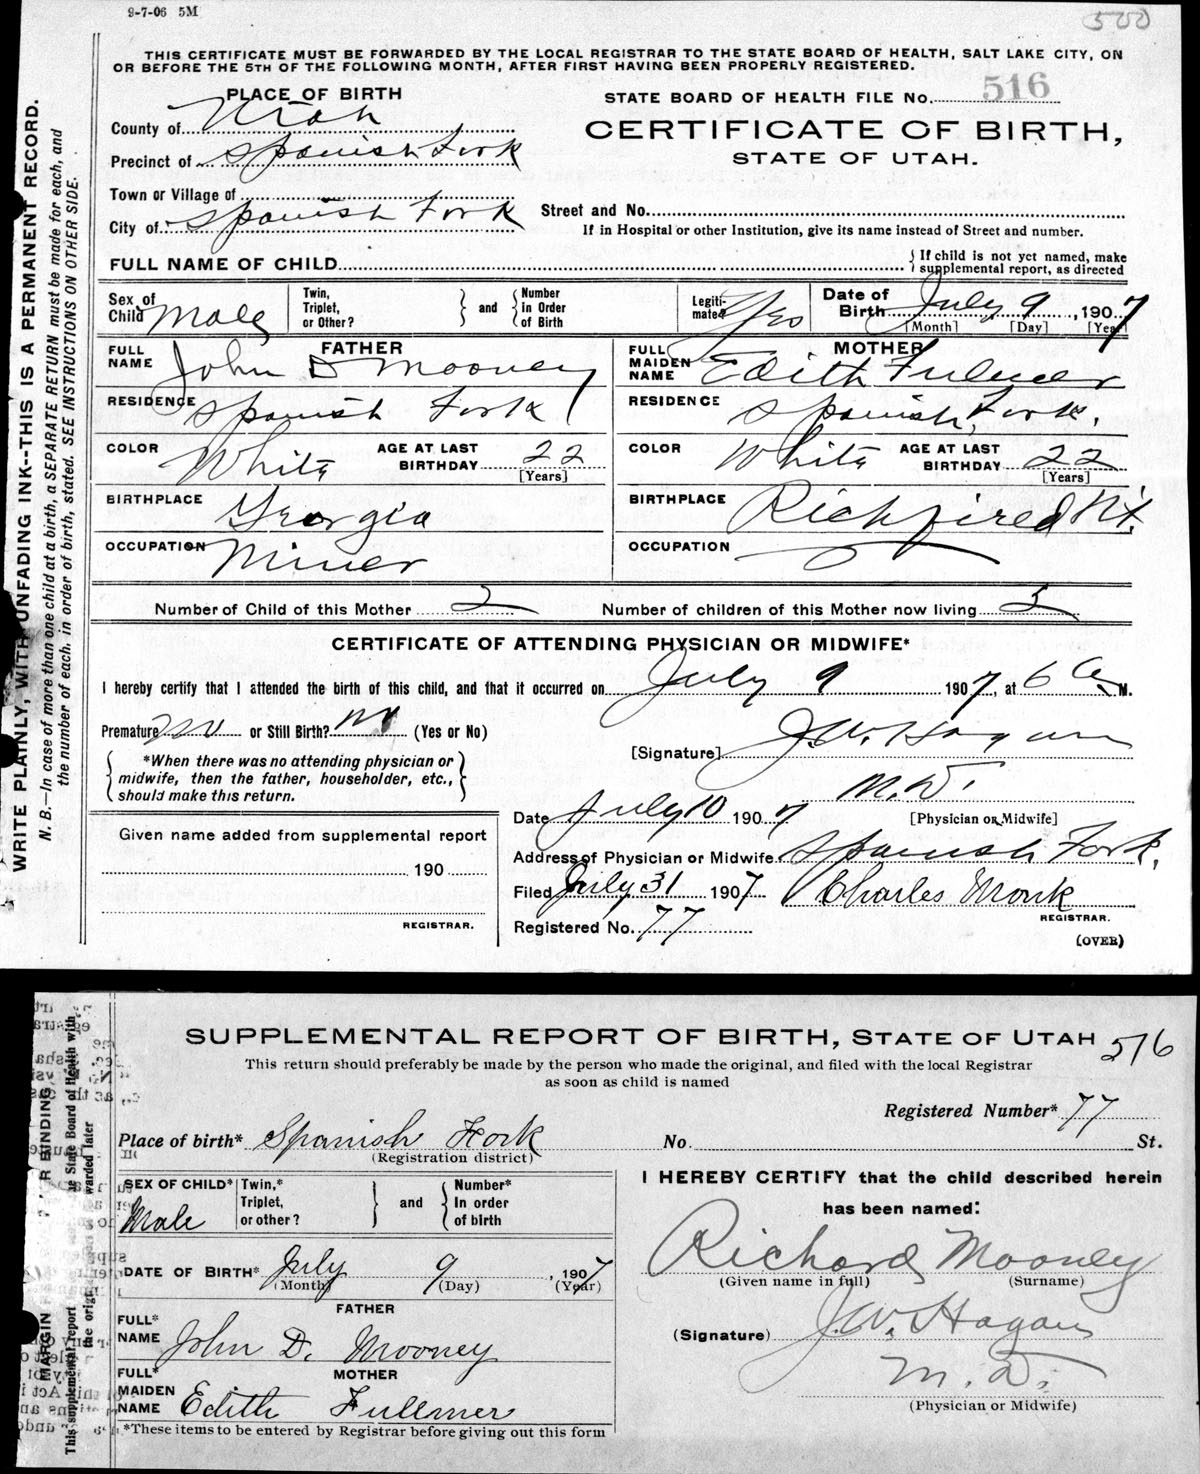 9-7-06 5M
500
THIS CERTIFICATE MUST BE FORWARDED BY THE LOCAL REGISTRAR TO THE STATE BOARD OF HEALTH, SALT LAKE CITY, ON
OR BEFORE THE 5TH OF THE FOLLOWING MONTH, AFTER FIRST HAVING BEEN PROPERLY REGISTERED.
WRITE PLAINLY, WITH UNFADING INK--THIS IS A PERMANENT RECORD.
N. B.—In case of more than one child at a birth, a SEPARATE RETURN must be made for each, and
the number of each, in order of birth, stated. SEE INSTRUCTIONS ON OTHER SIDE.
PLACE OF BIRTH
County of Utah
Precinct of Spanish Fork
Town or Village of
City of Spanish Fork
STATE BOARD OF HEALTH FILE No. 516
CERTIFICATE OF BIRTH,
STATE OF UTAH.
Street and No.
If in Hospital or other Institution, give its name instead of Street and number.
FULL NAME OF CHILD
If child is not yet named, make
supplemental report, as directed
Sex of
Child Male
Twin,
Triplet,
or Other?
and
Number
in Order
of Birth
Legiti-
mate? Yes
Date of
Birth July 9, 1907
[Month] [Day] [Year]
FATHER
FULL
NAME John D Mooney
RESIDENCE Spanish Fork
COLOR White
AGE AT LAST
BIRTHDAY 22
[Years]
BIRTHPLACE Georgia
OCCUPATION Miner
MOTHER
FULL
MAIDEN
NAME Edith Fulmer
RESIDENCE Spanish Fork.
COLOR White
AGE AT LAST
BIRTHDAY 22
[Years]
BIRTHPLACE Richfired Ut.
OCCUPATION
Number of Child of this Mother 2
Number of children of this Mother now living 2
CERTIFICATE OF ATTENDING PHYSICIAN OR MIDWIFE*
I hereby certify that I attended the birth of this child, and that it occurred on July 9 1907, at 6 A M.
Premature no or Still Birth? no (Yes or No)
*When there was no attending physician or
midwife, then the father, householder, etc.,
should make this return.
[Signature] J.W. Hagan
M.D.
[Physician or Midwife]
Date July 10 1907
Address of Physician or Midwife Spanish Fork.
Filed July 31 1907 Charles Monk
REGISTRAR.
Registered No. 77
(OVER)
Given name added from supplemental report
190
REGISTRAR.
SUPPLEMENTAL REPORT OF BIRTH, STATE OF UTAH 516
This return should preferably be made by the person who made the original, and filed with the local Registrar
as soon as child is named
Registered Number* 77
Place of birth* Spanish Fork No. St.
(Registration district)
SEX OF CHILD*
Male
Twin,*
Triplet,
or other?
and
Number*
In order
of birth
DATE OF BIRTH* July 9, 1907
(Month) (Day) (Year)
FATHER
FULL*
NAME John D. Mooney
MOTHER
FULL*
MAIDEN
NAME Edith Fullmer
*These items to be entered by Registrar before giving out this form
I HEREBY CERTIFY that the child described herein
has been named:
Richard Mooney
(Given name in full) (Surname)
(Signature) J.W. Hagan
M.D.
(Physician or Midwife)
MARGIN
R BINDING
This supplemental report
the origi
e State Board of Health with
warded later